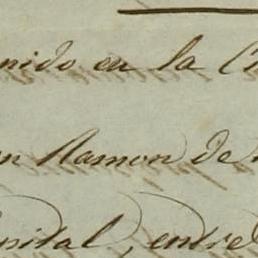 nido en la C
n Ramon de
pital, entre